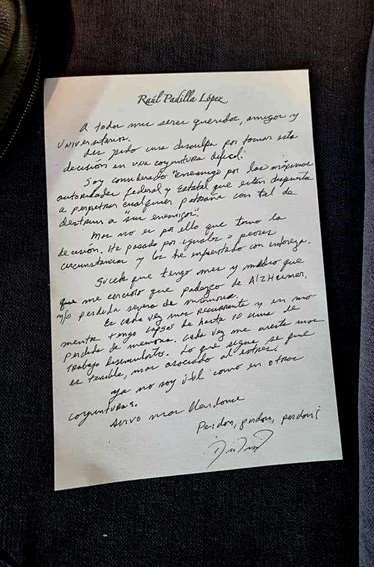 Raúl Padilla López
A todos mis seres queridos, amigos y
Universitarios.
Les pido una disculpa por tomar esta
decisión en una coyuntura difícil.
Soy considerado "enemigo por las máximas
autoridades Federal y Estatal que están dispuestas
a perpetrar cualquier patraña con tal de
destruir a "sus enemigos".
Mas no es por ello que tomo la
decisión. He pasado por iguales o peores
circunstancias y las he enfrentado con entereza.
Sucede que tengo mes y medio que
me
que padezco de Alzheimer,
y/o perdida severa de memoria.
Es cada vez mas recurrente y en mo
mentos tengo lapsos de hasta 10 mins de
perdida de memoria. Cada vez me cuesta mas
trabajo Lo que sigue se que
es terrible, mas asociado al
ya no soy útil como en otras
coyunturas.
Perdon, perdon, perdon!